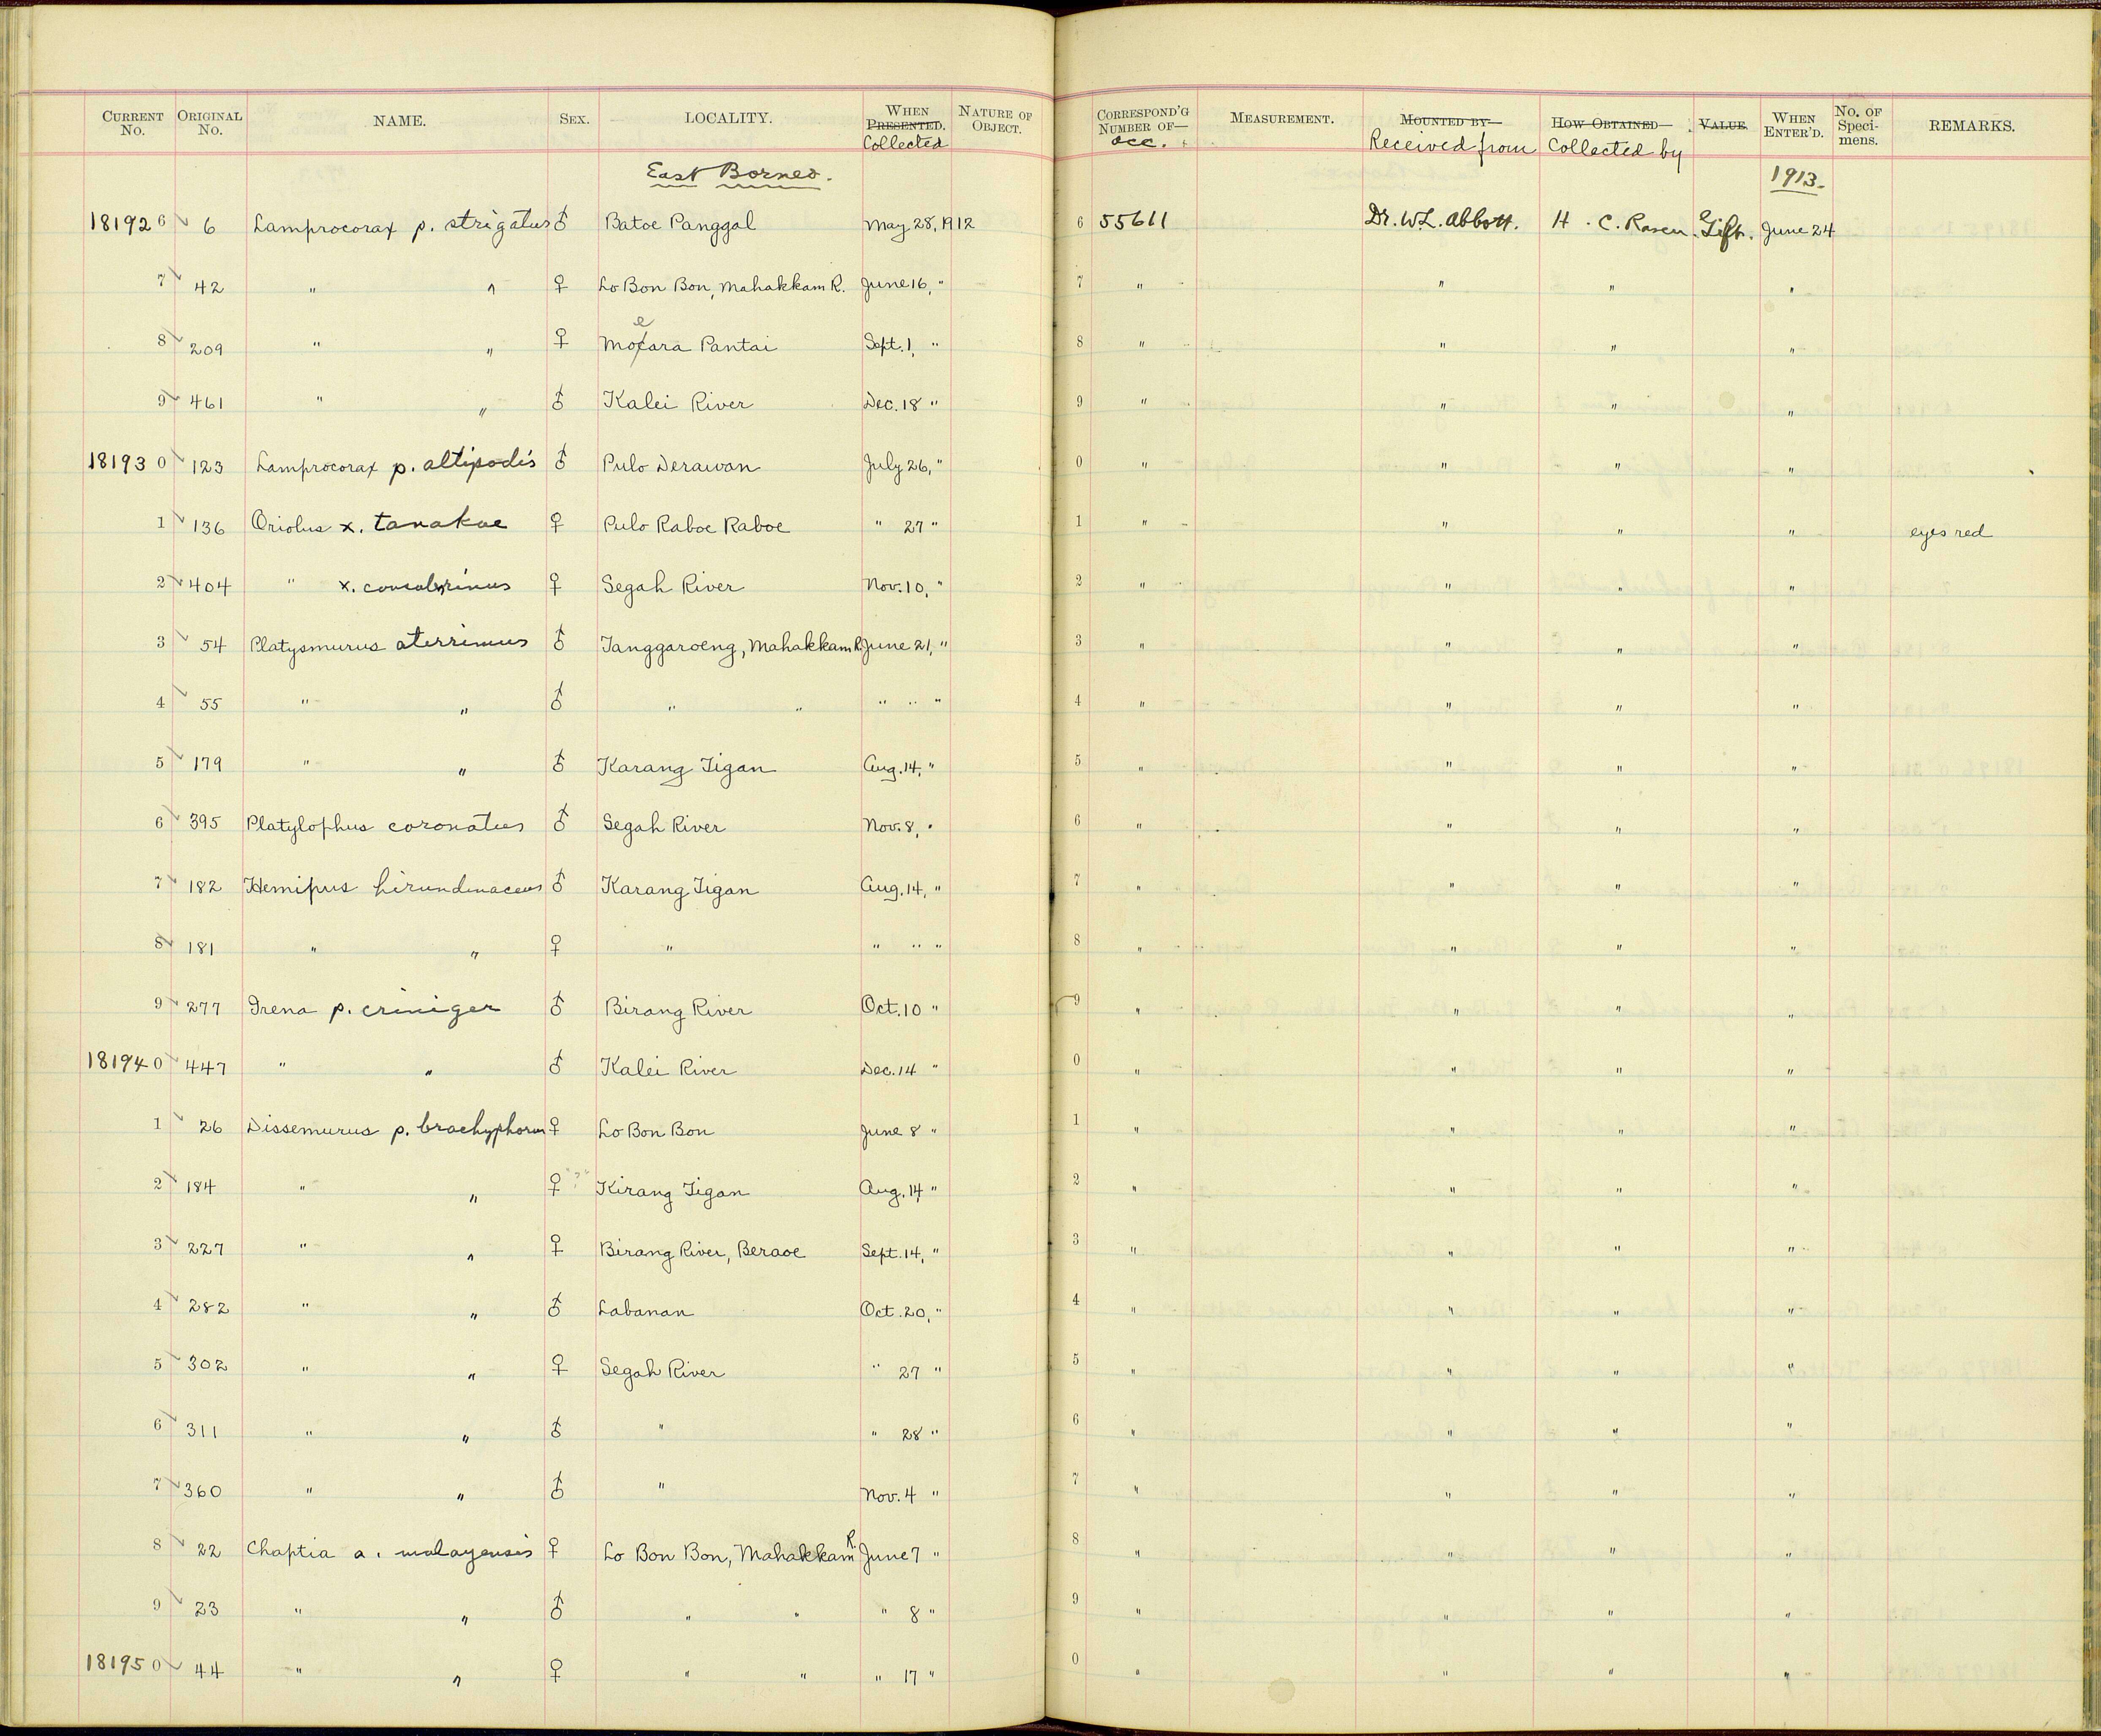 CURRENT No. ORIGINAL No. NAME. SEX. LOCALITY. WHEN PRESENTED. Collected NATURE OF OBJECT. CORRESPOND'G NUMBER OF— acc. MEASUREMENT. MOUNTED BY— Received from HOW OBTAINED— Collected by VALUE. WHEN ENTER'D. No. OF Speci-mens. REMARKS.
East Borneo. 1913.
18192 6 6 Lamprocorax p. strigatus ♂ Batoe Panggal May 28, 1912 6 55611 Dr. W.L. Abbott. H. C. Raven Gift. June 24
7 42 " " ♀ Lo Bon Bon, Mahakkam R. June 16, " 7 " " " "
8 209 " " ♀ Moeara Pantai Sept. 1, " 8 " " " "
9 461 " " ♂ Kalei River Dec. 18 " 9 " " " "
18193 0 123 Lamprocorax p. altipodis ♂ Pulo Derawan July 26, " 0 " " " "
1 136 Oriolus x. tanakae ♀ Pulo Raboe Raboe " 27 " 1 " " " " eyes red
2 404 " x. consobrinus ♀ Segah River Nov. 10, " 2 " " " "
3 54 Platysmurus aterrimus ♂ Tanggaroeng, Mahakkam R. June 21, " 3 " " " "
4 55 " " ♂ " " " " " 4 " " " "
5 179 " " ♂ Karang Tigan Aug. 14, " 5 " " " "
6 395 Platylophus coronatus ♂ Segah River Nov. 8, " 6 " " " "
7 182 Hemipus hirundinaceus ♂ Karang Tigan Aug. 14, " 7 " " " "
8 181 " " ♀ " " " " 8 " " " "
9 277 Irena p. criniger ♂ Birang River Oct. 10 " 9 " " " "
18194 0 447 " " ♂ Kalei River Dec. 14 " 0 " " " "
1 26 Dissemurus p. brachyphorus ♀ Lo Bon Bon June 8 " 1 " " " "
2 184 " " ♀ "?" Kirang Tigan Aug. 14 " 2 " " " "
3 227 " " ♀ Birang River, Beraoe Sept. 14, " 3 " " " "
4 282 " " ♂ Labanan Oct. 20, " 4 " " " "
5 302 " " ♀ Segah River " 27 " 5 " " " "
6 311 " " ♂ " " 28 " 6 " " " "
7 360 " " ♂ " Nov. 4 " 7 " " " "
8 22 Chaptia a. malayensis ♀ Lo Bon Bon, Mahakkam R. June 7 " 8 " " " "
9 23 " " ♂ " " " 8 " 9 " " " "
18195 0 44 " " ♀ " " " 17 " 0 " " " "